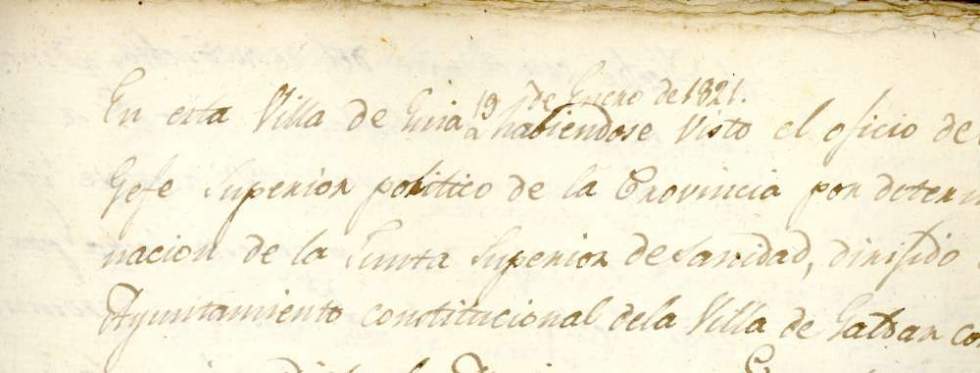 19 de Enero de 1821.
En esta Villa de Guia a habiendose visto el oficio de
Gefe Superior politico de la Provincia por determ
nacion de la Junta Superior de Sanidad, dirijido
Ayuntamiento constitucional dela Villa de Galdar con